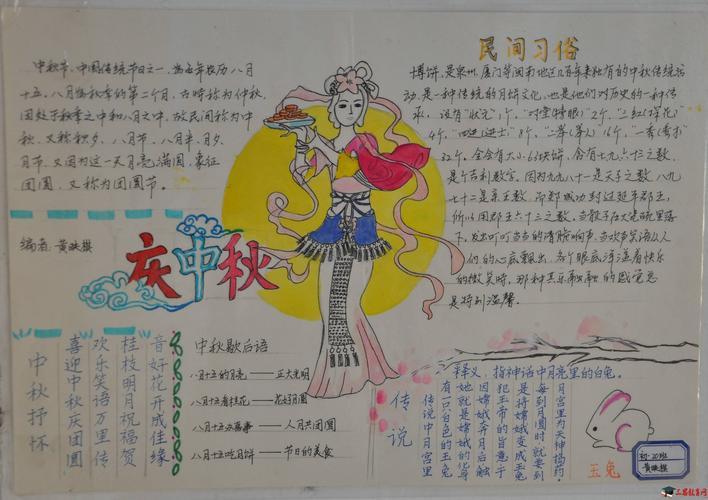 中秋节，中国传统节日之一，为每年农历八月
十五，八月为秋季的第二个月，古时称为仲秋，
因处于秋季之中和八月之中，故民间称为中
秋，又称秋夕、八月节、八月半、月夕、
月节，又因为这一天月亮满圆，象征
团圆，又称为团圆节。
编者：黄映祺
庆中秋
民间习俗
博饼，是泉州，厦门等闽南地区几百年来独有的中秋传统活
动，是一种传统的月饼文化，也是他们对历史的一种传
承，设有“状元”1个，“对堂(榜眼)”2个，“三红(探花)”
4个，“四进(进士)”8个，“二举(举人)”16个，“一秀(秀才)”
32个，全会有大小63块饼，含有七九六十三之数，
是个吉利数字。因为九九八十一是天子之数，八九
七十二是亲王数，而郑成功封过延平郡王，
所以用郡王六十三之数，当骰子在大瓷碗里落
下，发出叮叮当当的清脆响声，当欢声笑语从人
们的心底飘出，各个眼底洋溢着快乐
的微笑时，那种其乐融融的感觉总
是特别温馨。
中秋抒怀
喜迎中秋庆团圆
欢乐笑语万里传
桂枝明月祝福贺
音好花开成佳缘
中秋歇后语
八月十五的月亮——正大光明
八月十五看桂花——花好月圆
八月十五办喜事——人月共团圆
八月十五吃月饼——节日的美食
传说
释义：指神话中月亮里的白兔。
传说中月宫里
有一只白色的玉兔
她就是嫦娥的化身
因嫦娥奔月后触
犯玉帝的旨意于
是将嫦娥变成玉兔
每到月圆时就要到
月宫里为天神捣药
玉兔
初一20班
黄映祺
工器教育网